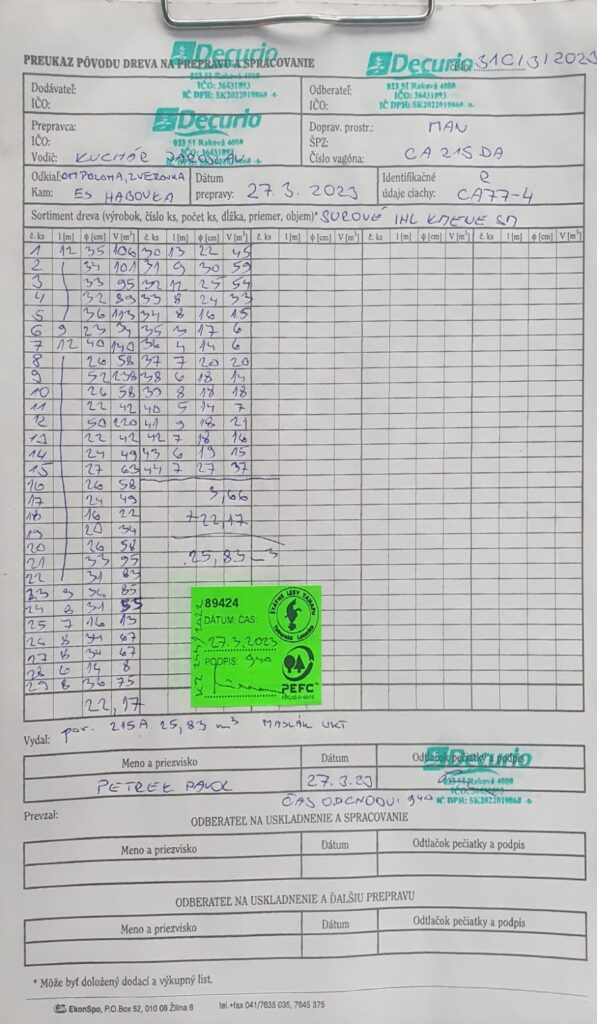 PREUKAZ PÔVODU DREVA NA PREPRAVU A SPRACOVANIE
Decurio
023 51 Raková 4080
IČO: 36431893
IČ DPH: SK2022019868
Decurio
023 51 Raková 4080
IČO: 36431893
IČ DPH: SK2022019868
31C/3/2023
Dodávateľ:
IČO:
Odberateľ:
IČO:
Prepravca:
IČO:
Vodič: KUCHÁR JAROSLAV
Decurio
023 51 Raková 4080
Doprav. prostr.: MAN
ŠPZ:
Číslo vagóna: CA 215 DA
Odkiaľ: OM POLOMA, ZVEROVKA
Kam: ES HABOVKA
Dátum
prepravy: 27.3.2023
Identifikačné
údaje ciachy: CA77-4
Sortiment dreva (výrobok, číslo ks, počet ks, dĺžka, priemer, objem)* SUROVÉ IHL KMENE SM
č. ks l [m] ϕ [cm] V [m³] č. ks l [m] ϕ [cm] V [m³] č. ks l [m] ϕ [cm] V [m³] č. ks l [m] ϕ [cm] V [m³] č. ks l [m] ϕ [cm] V [m³]
1 12 35 106 30 13 22 45
2 34 101 31 9 30 59
3 33 95 32 12 25 54
4 32 89 33 8 24 33
5 36 113 34 8 16 15
6 9 23 34 35 3 17 6
7 12 40 140 36 4 14 6
8 26 58 37 7 20 20
9 52 238 38 6 18 14
10 26 58 39 8 18 18
11 22 42 40 5 14 7
12 50 220 41 9 18 21
13 22 42 42 7 18 16
14 24 49 43 6 19 15
15 27 63 44 7 27 37
16 26 58
17 24 49 3,66
18 16 22 +22,17
19 20 34
20 26 58 25,83 m³
21 33 95
22 31 83
23 9 36 85
24 8 31 55
25 7 16 13
26 8 34 67
27 8 34 67
28 6 14 8
29 8 36 75
22,17
89424
DÁTUM, ČAS:
27.3.2023
PODPIS: 940
ŠTÁTNE LESY TANAPU
Tatranská Lomnica
PEFC
por. 215A 25,83 m³ MASLÁK UKT
Vydal:
Meno a priezvisko Dátum Odtlačok pečiatky a podpis
PETREK PAVOL 27.3.23
Decurio
023 51 Raková 4080
IČ DPH: SK2022019868
ČAS ODCHODU: 940
Prevzal:
ODBERATEĽ NA USKLADNENIE A SPRACOVANIE
Meno a priezvisko Dátum Odtlačok pečiatky a podpis
ODBERATEĽ NA USKLADNENIE A ĎALŠIU PREPRAVU
Meno a priezvisko Dátum Odtlačok pečiatky a podpis
* Môže byť doložený dodací a výkupný list.
EkonSpo, P.O.Box 52, 010 08 Žilina 8 tel.+fax 041/7635 035, 7645 375